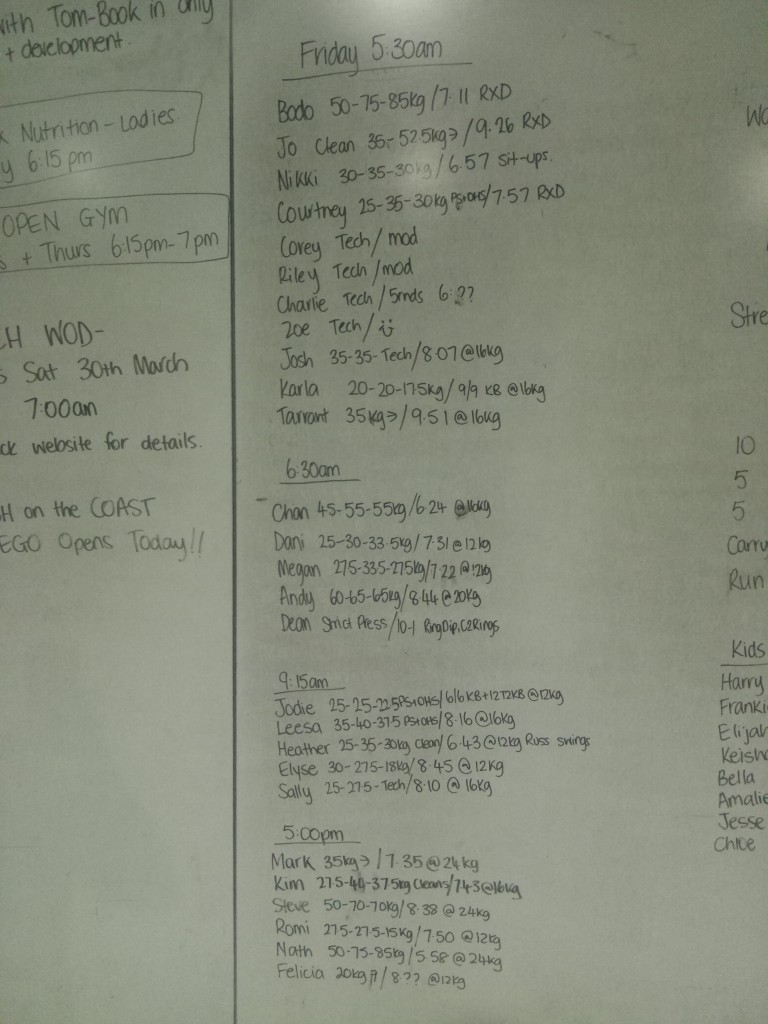 with Tom-Book in only
+ development.
Nutrition - Ladies
y 6:15 pm
OPEN GYM
s + Thurs 6:15pm-7pm
H WOD-
s Sat 30th March
7:00am
ck website for details.
H on the COAST
EGO Opens Today!!
Friday 5:30am
Bodo 50-75-85kg/7.11 RXD
Jo Clean 35-52.5kg→/9.26 RXD
Nikki 30-35-30kg/6.57 Sit-ups.
Courtney 25-35-30kg PS+OHS/7.57 RXD
Corey Tech/mod
Riley Tech/mod
Charlie Tech/5rnds 6:??
Zoe Tech/
Josh 35-35-Tech/8.07@16kg
Karla 20-20-17.5kg/9/9 KB @16kg
Tarrant 35kg→/9.51@16kg
6:30am
Chan 45-55-55kg/6.24 @16kg
Dani 25-30-33.5kg/7.31@12kg
Megan 27.5-33.5-27.5kg/7.22@12kg
Andy 60-65-65kg/8.44@20kg
Dean Strict Press/10-1 RingDip, C2Rings
9:15am
Jodie 25-25-22.5PS+OHS/6/6KB+12 12KB@12kg
Leesa 35-40-37.5 PS+OHS/8.16@16kg
Heather 25-35-30kg Clean/6.43@12kg Russ swings
Elyse 30-27.5-18kg/8.45@12kg
Sally 25-27.5-Tech/8.10@16kg
5:00pm
Mark 35kg→/7.35@24kg
Kim 27.5-40-37.5kg Cleans/7.43@16kg
Steve 50-70-70kg/8.38@24kg
Romi 27.5-27.5-15kg/7.50@12kg
Nath 50-75-85kg/5.58@24kg
Felicia 20kg/8?? @12kg
Wo
Stre
10
5
5
Carry
Run
Kids
Harry
Franki
Elijah
Keisha
Bella
Amalie
Jesse
Chloe